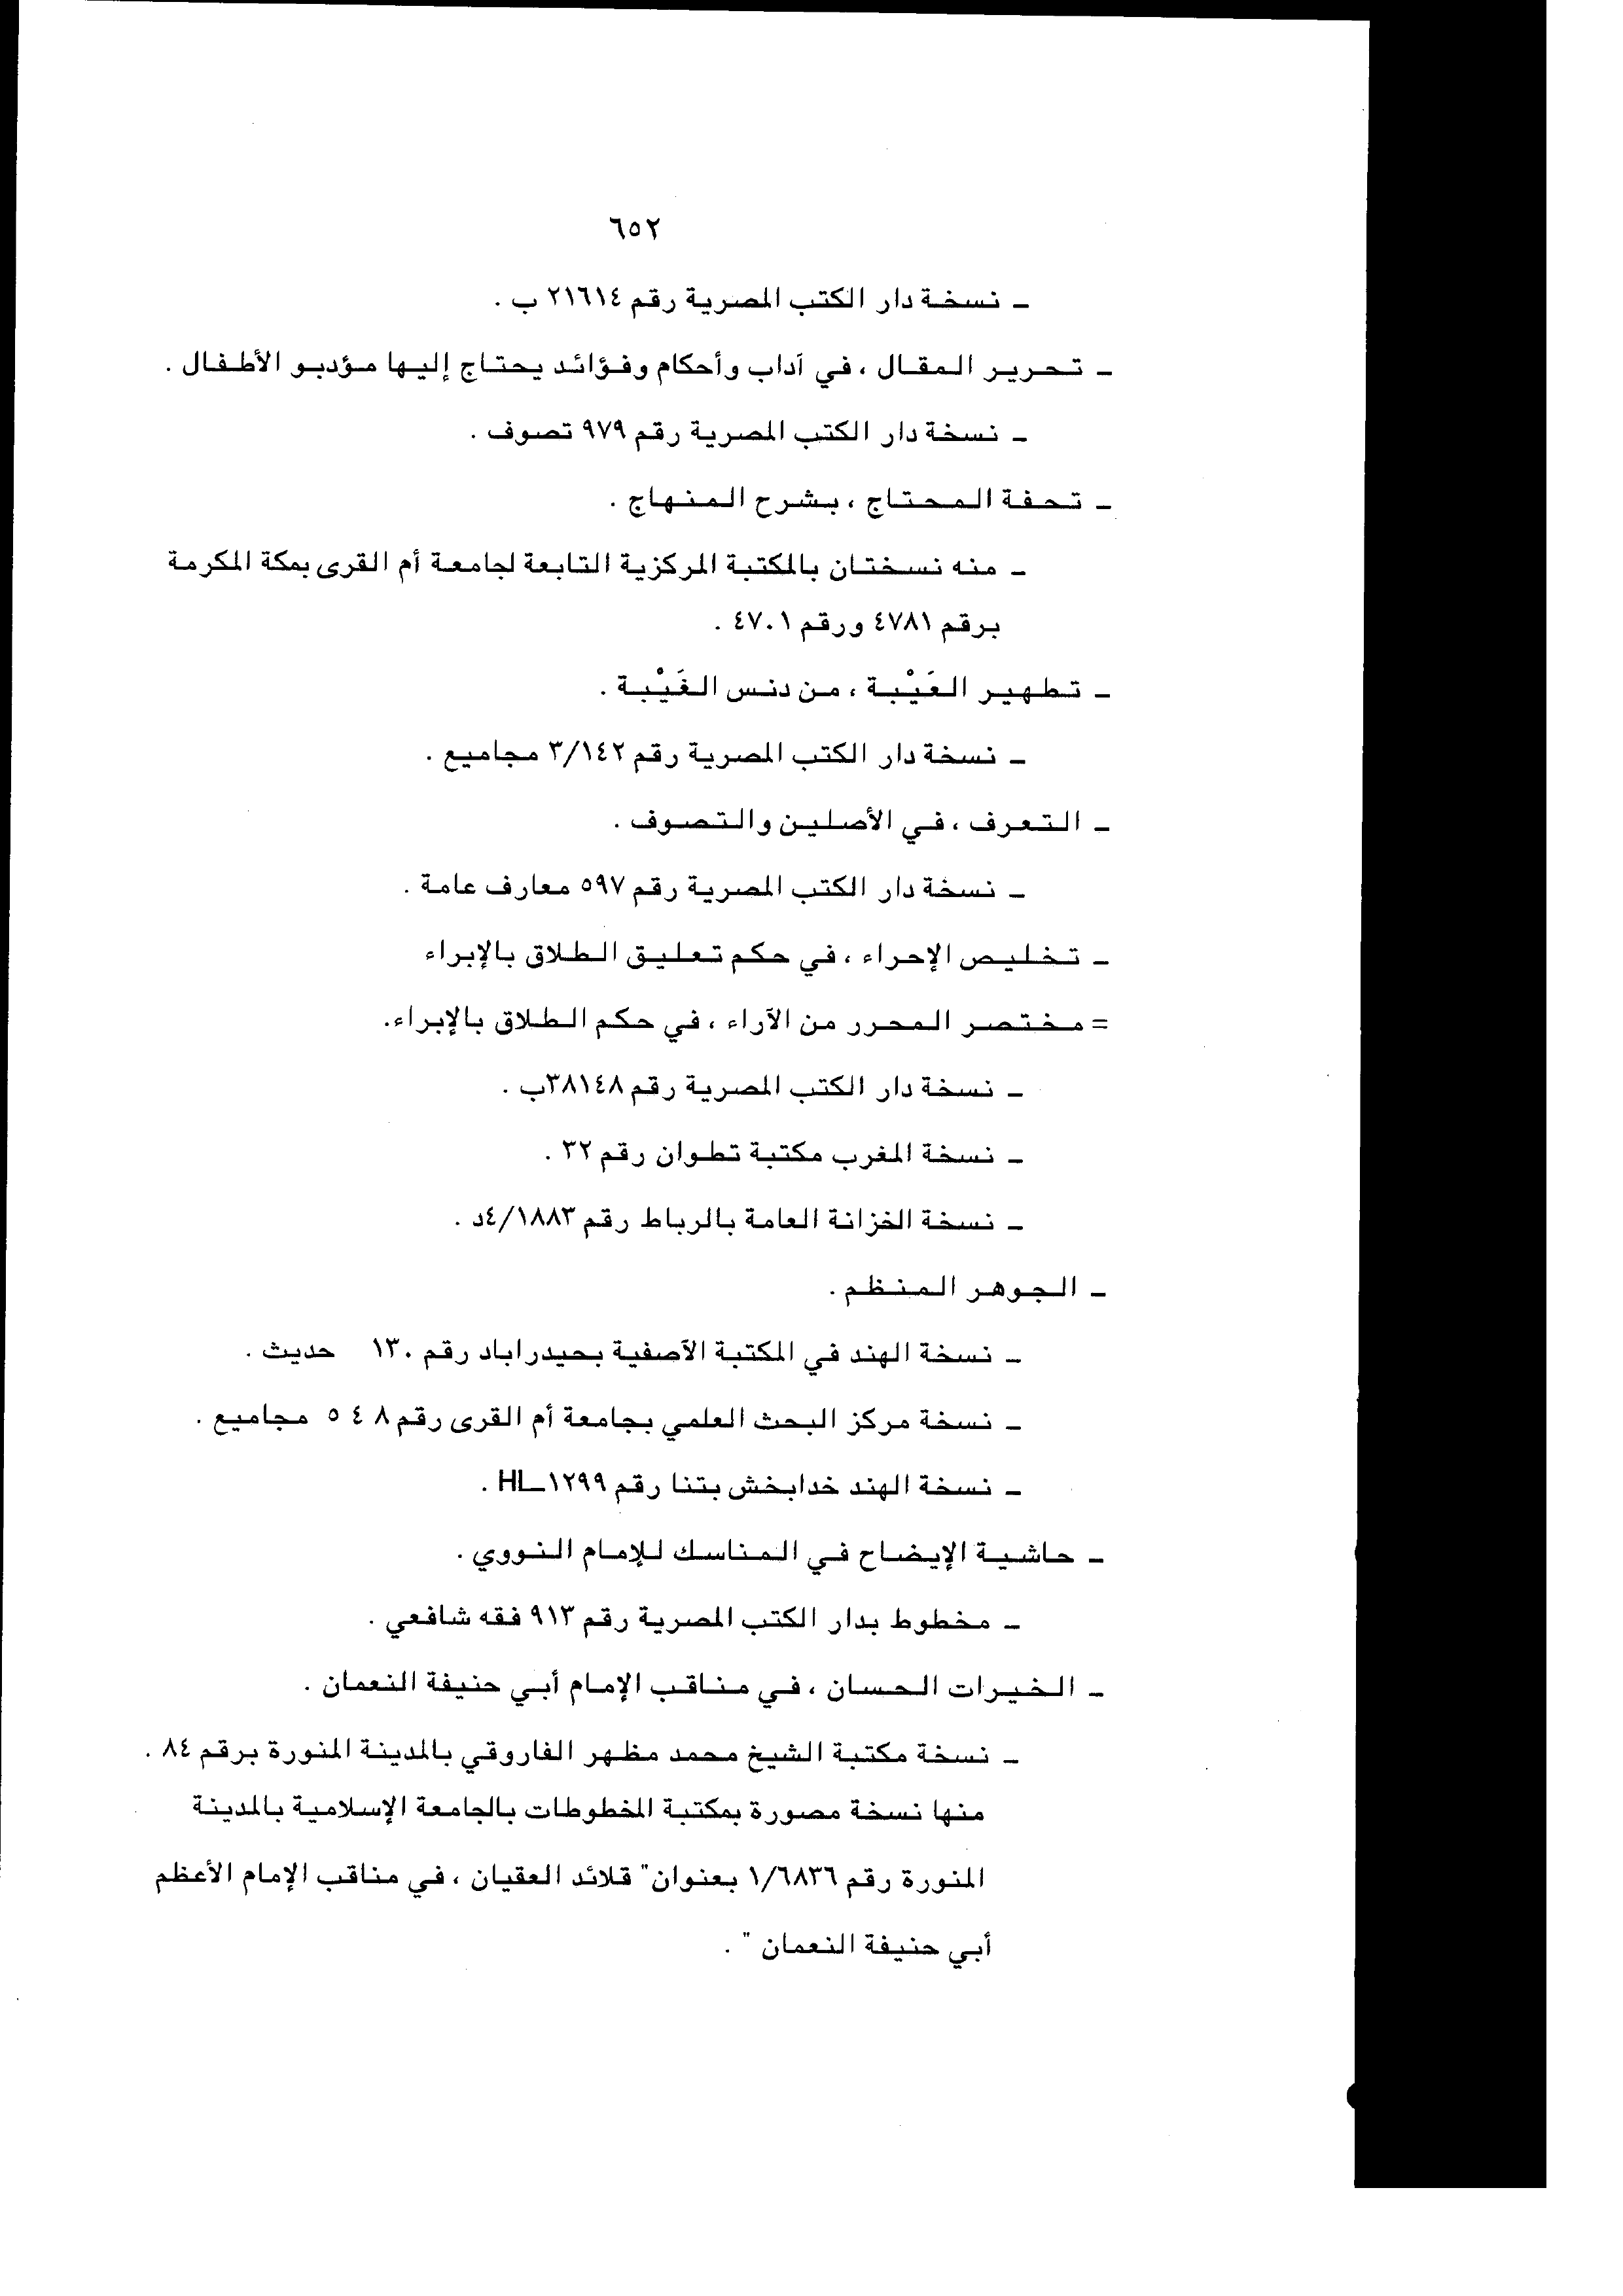 ٦٥٢
ـ نسخة دار الكتب المصرية رقم ٢١٦١٤ ب .
ـ تحرير المقال ، في آداب وأحكام وفؤائد يحتاج إليها مؤدبو الأطفال .
ـ نسخة دار الكتب المصرية رقم ٩٧٩ تصوف .
ـ تحفة المحتاج ، بشرح المنهاج .
ـ منه نسختان بالمكتبة المركزية التابعة لجامعة أم القرى بمكة المكرمة
برقم ٤٧٨١ ورقم ٤٧٠١ .
ـ تطهير العَيْبة ، من دنس الغَيْبة .
ـ نسخة دار الكتب المصرية رقم ٣/١٤٢ مجاميع .
ـ التعرف ، في الأصلين والتصوف .
ـ نسخة دار الكتب المصرية رقم ٥٩٧ معارف عامة .
ـ تخليص الإحراء ، في حكم تعليق الطلاق بالإبراء
= مختصر المحرر من الآراء ، في حكم الطلاق بالإبراء.
ـ نسخة دار الكتب المصرية رقم ٣٨١٤٨ب .
ـ نسخة المغرب مكتبة تطوان رقم ٣٢ .
ـ نسخة الخزانة العامة بالرباط رقم ٤/١٨٨٣د .
ـ الجوهر المنظم .
ـ نسخة الهند في المكتبة الآصفية بحيدراباد رقم ١٣٠ حديث .
ـ نسخة مركز البحث العلمي بجامعة أم القرى رقم ٨ ٤ ٥ مجاميع .
ـ نسخة الهند خدابخش بتنا رقم ١٢٩٩ـHL .
ـ حاشية الإيضاح في المناسك للإمام النووي .
ـ مخطوط بدار الكتب المصرية رقم ٩١٣ فقه شافعي .
ـ الخيرات الحسان ، في مناقب الإمام أبي حنيفة النعمان .
ـ نسخة مكتبة الشيخ محمد مظهر الفاروقي بالمدينة المنورة برقم ٨٤ .
منها نسخة مصورة بمكتبة المخطوطات بالجامعة الإسلامية بالمدينة
المنورة رقم ١/٦٨٣٦ بعنوان" قلائد العقيان ، في مناقب الإمام الأعظم
أبي حنيفة النعمان " .